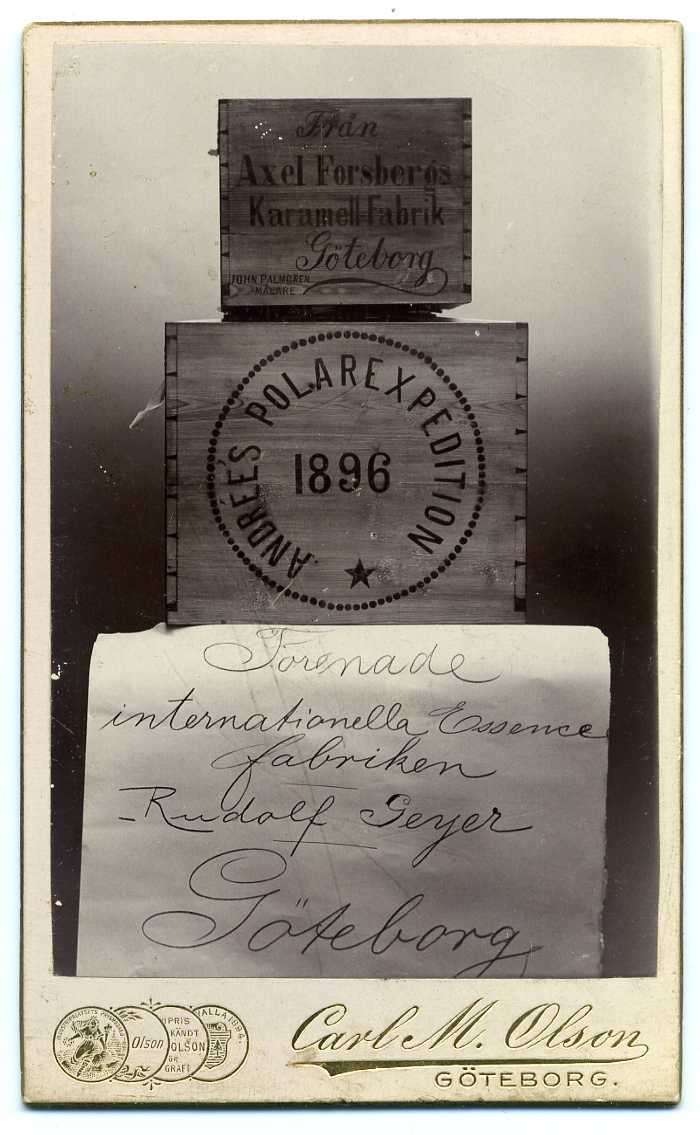 Från
Axel Forsbergs
Karamell-Fabrik
Göteborg
JOHN PALMGREN
MÅLARE
ANDRÉE'S POLAREXPEDITION
1896
Förenade
internationella Essence
fabriken
Rudolf Geyer
Göteborg
Olson
PRIS
KÄNDT
OLSON
GRAFI
1894.
Carl M. Olson
GÖTEBORG.